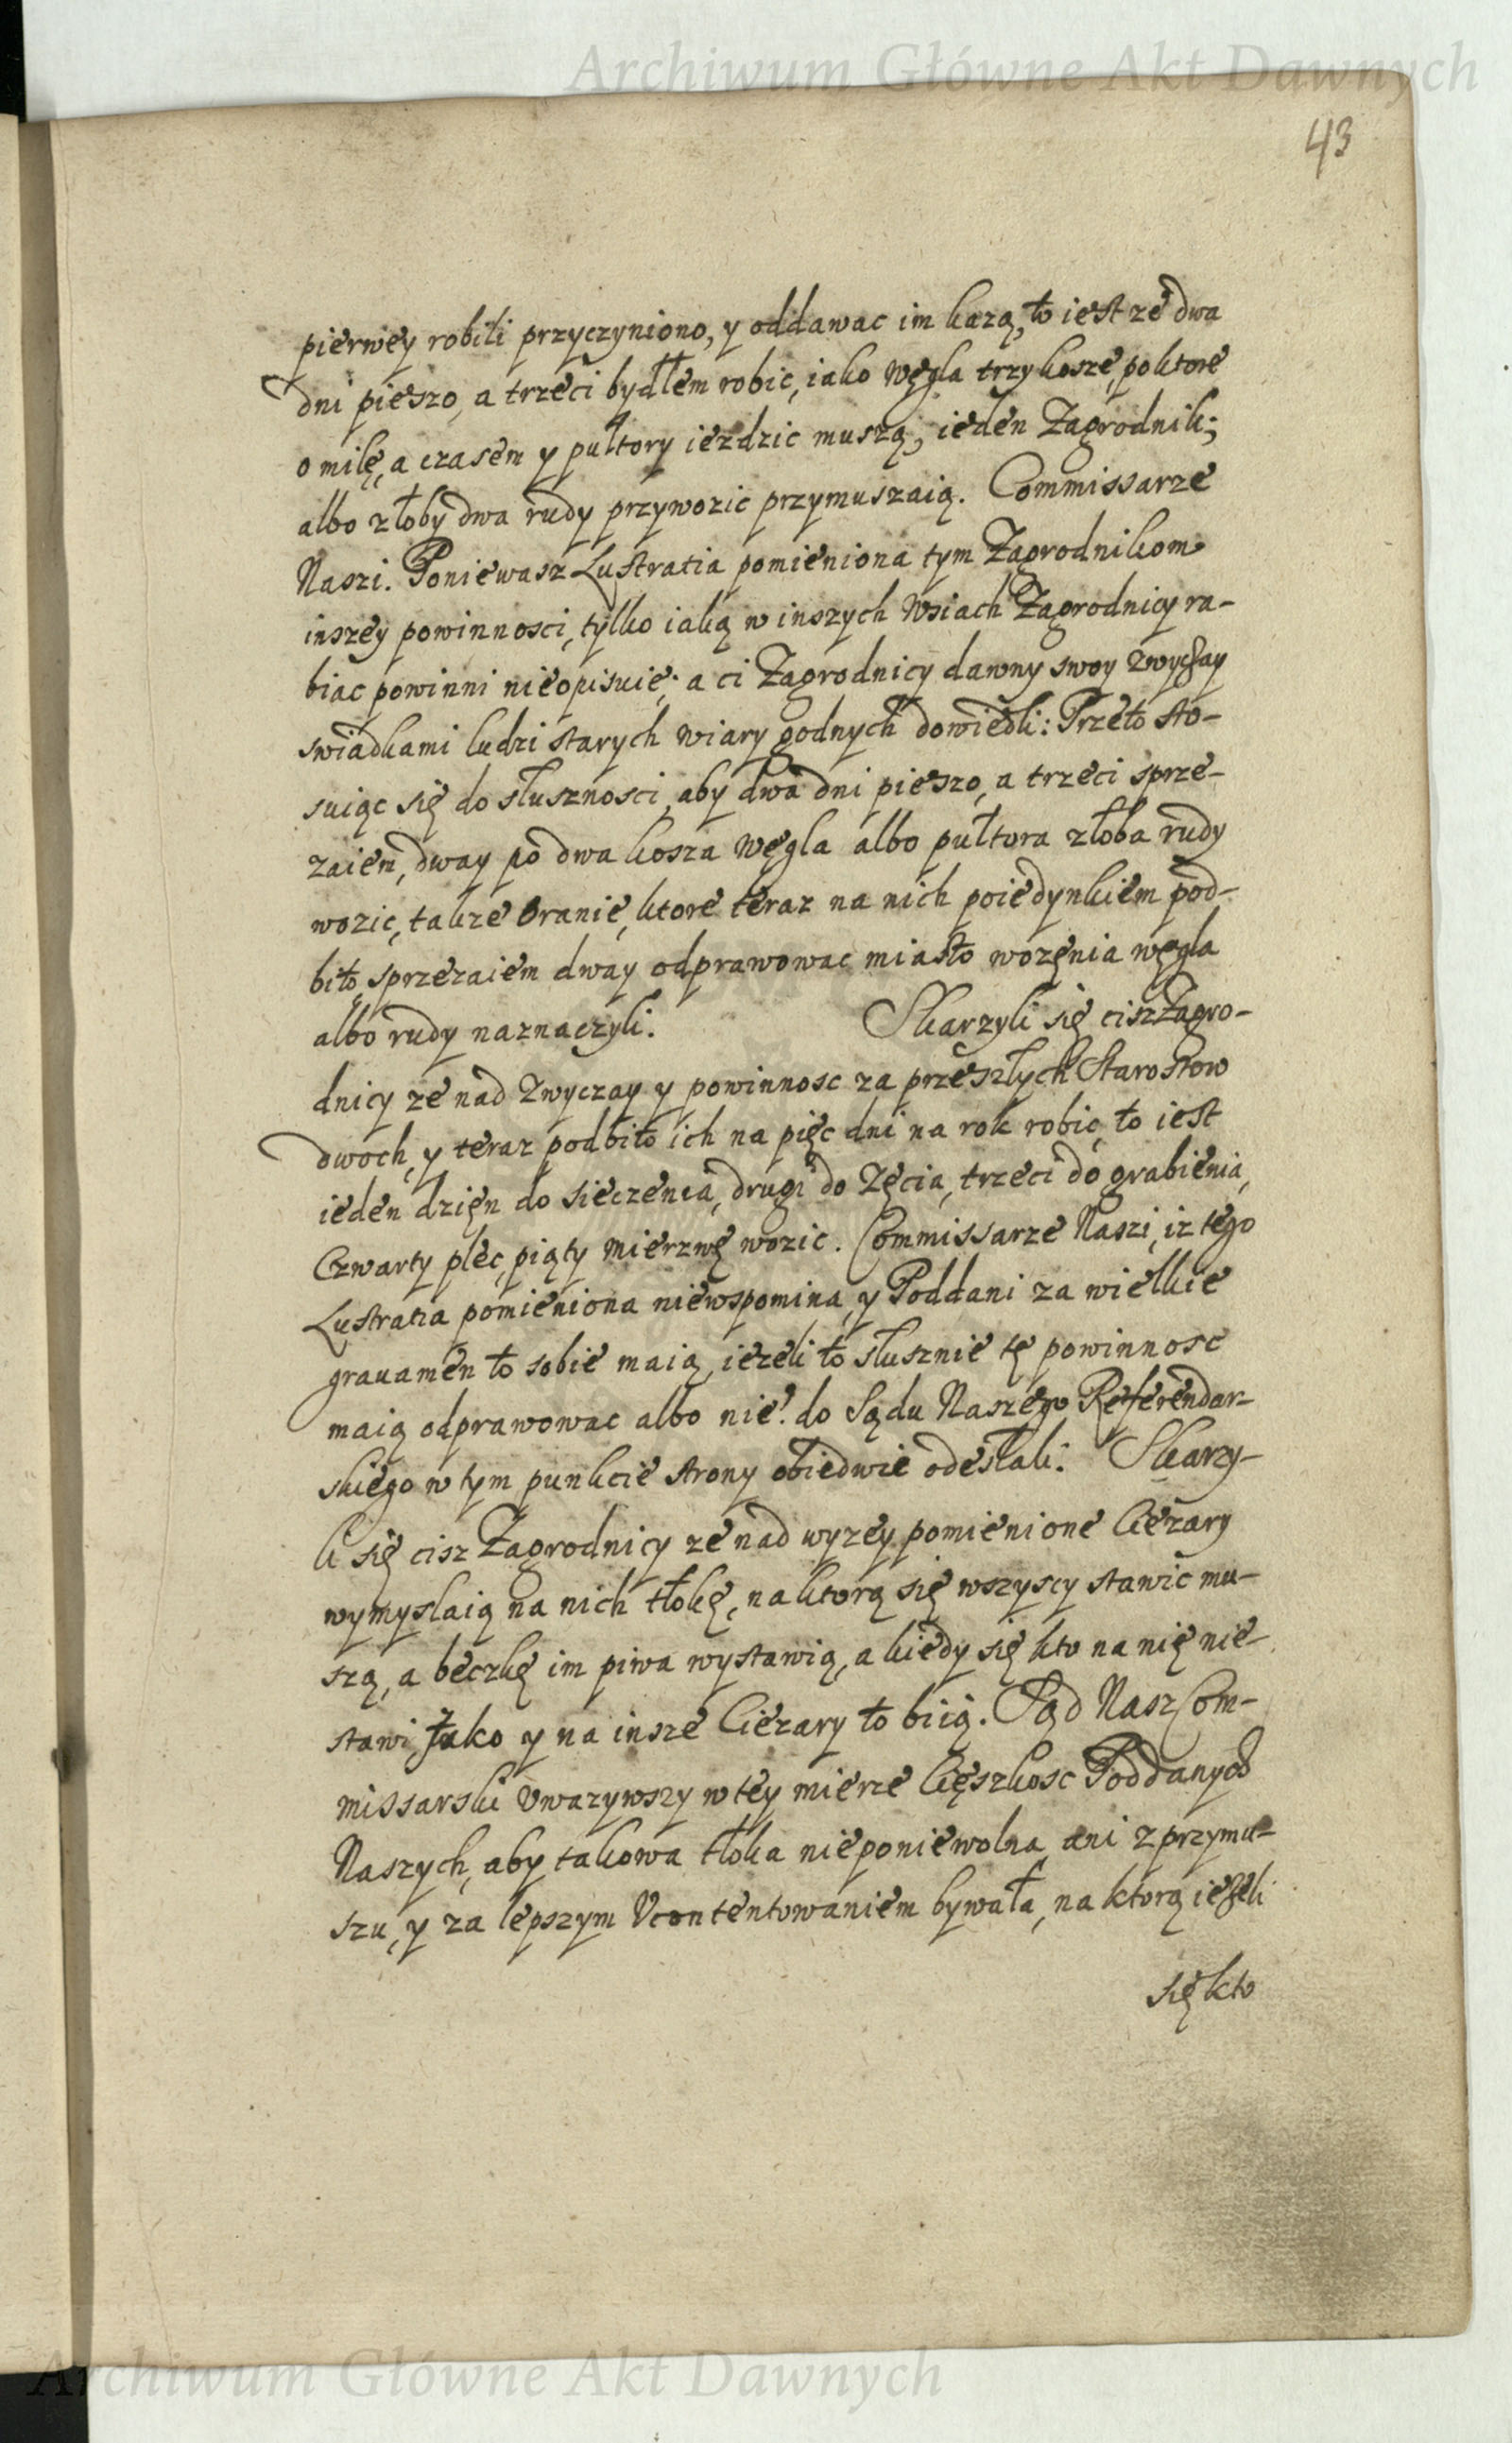 Archiwum Główne Akt Dawnych
43
pierwey robili przyczyniono, y oddawac im kazą, to iest ze dwa
dni pieszo, a trzeci bydłem robic, iako Węgla trzy kosze, po ktore
o milę, a czasem y pułtory iezdzic muszą, ieden Zagrodnik;
albo złoby dwa rudy przywozic przymuszaią. Commissarze
Naszi. Poniewasz Lustratia pomieniona tym Zagrodnikom
inszey powinnosci, tylko iaką w inszych Wsiach Zagrodnicy ra-
biac powinni nieopisuie; a ci Zagrodnicy dawny swoy zwyczay
swiadkami ludzi starych wiary godnych dowiedli: Przeto sto-
suiąc się do słusznosci, aby dwa dni pieszo, a trzeci sprze-
zaiem, dway po dwa kosza Węgla albo pułtora złoba rudy
wozic, takze Oranie, ktore teraz na nich poiedynkiem pod-
bito, sprzezaiem dway odprawowac miasto wozęnia węgla
albo rudy naznaczyli. Skarzyli się cisz Zagro-
dnicy ze nad Zwyczay y powinnosc za przeszłych Starostow
dwoch, y teraz podbito ich na pięc dni na rok robic, to iest
ieden dzięn do sieczenia, drugi do Zęcia, trzeci do grabienia,
Czwarty plec, piąty mierzwę wozic. Commissarze Naszi, iz tego
Lustratia pomieniona niewspomina, y Poddani za wielkie
grauamen to sobie maią, iezeli to słusznie tę powinnosc
maią odprawowac albo nie? do Sądu Naszego Referendar-
skiego w tym punkcie strony obiedwie odesłali. Skarzy-
li się cisz Zagrodnicy ze nad wyzey pomienione Cięzary
wymyslaią na nich tłokę, na ktorą się wszyscy stawic mu-
szą, a beczkę im piwa wystawią, a kiedy się kto na nię nie-
stawi Jako y na insze Cięzary to biią. Sąd Nasz Com-
missarski Uwazywszy w tey mierze Cięszkosc Poddanych
Naszych, aby takowa tłoka nieponiewolna ani z przymu-
szu, y za lepszym Ucontentowaniem bywała, na ktorą iezeli
się kto
Archiwum Główne Akt Dawnych